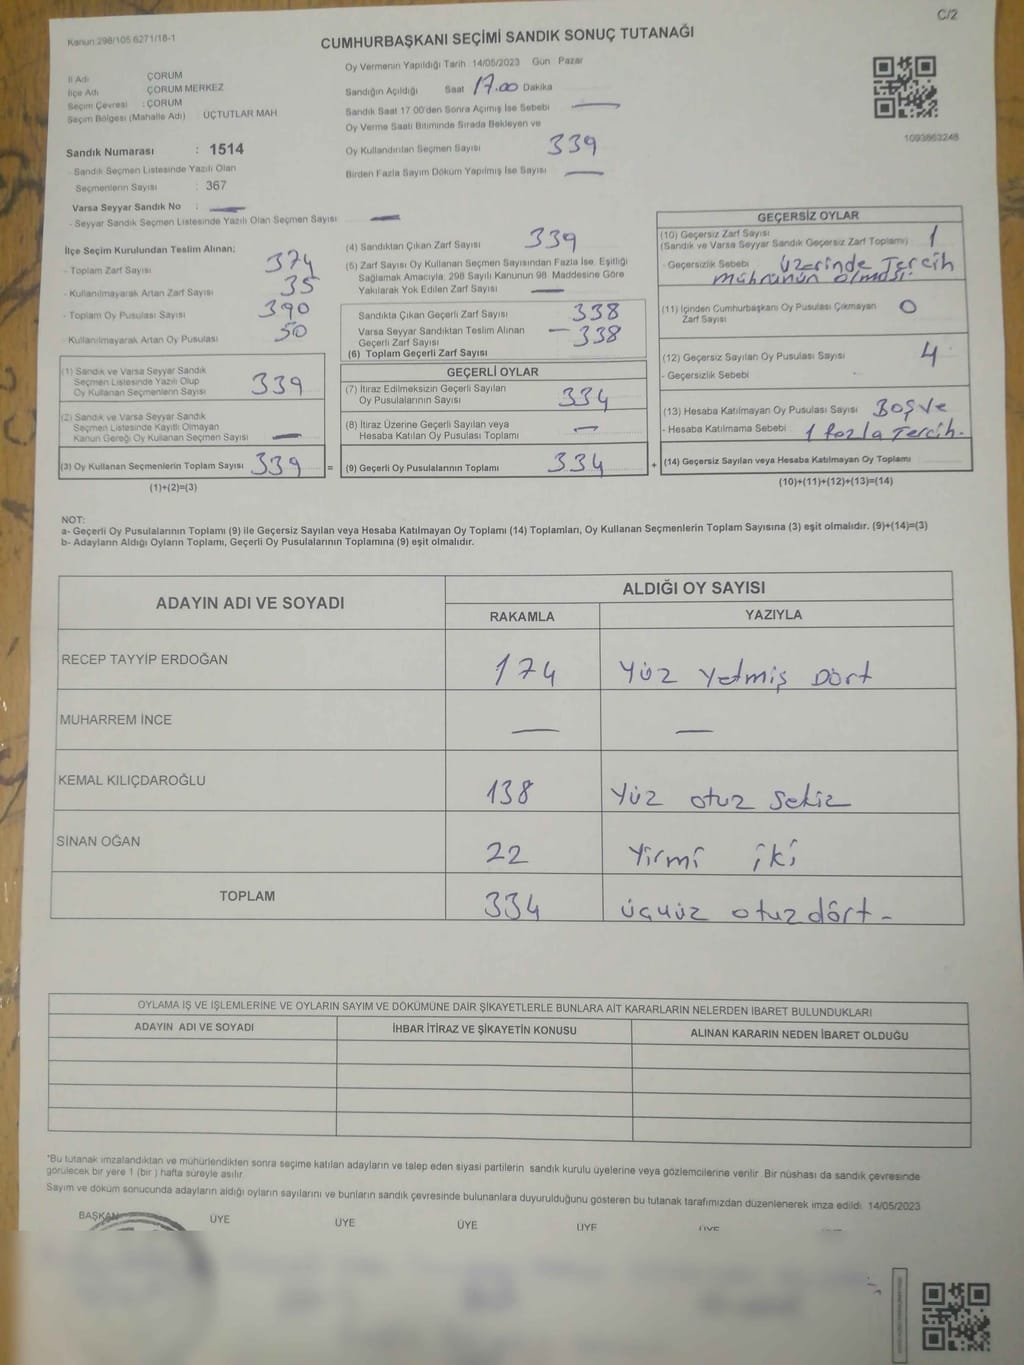 C/2
Kanun:298/105 6271/18-1
CUMHURBAŞKANI SEÇİMİ SANDIK SONUÇ TUTANAĞI
İl Adı ÇORUM
İlçe Adı ÇORUM MERKEZ
Seçim Çevresi : ÇORUM
Seçim Bölgesi (Mahalle Adı) : ÜÇTUTLAR MAH
Sandık Numarası : 1514
- Sandık Seçmen Listesinde Yazılı Olan
Seçmenlerin Sayısı : 367
Varsa Seyyar Sandık No : —
- Seyyar Sandık Seçmen Listesinde Yazılı Olan Seçmen Sayısı —
Oy Vermenin Yapıldığı Tarih 14/05/2023 Gün : Pazar
Sandığın Açıldığı Saat 17.00 Dakika
Sandık Saat 17.00'den Sonra Açımış İse Sebebi —
Oy Verme Saati Bitiminde Sırada Bekleyen ve
Oy Kullandırılan Seçmen Sayısı 339
Birden Fazla Sayım Döküm Yapılmış İse Sayısı —
1093863248
İlçe Seçim Kurulundan Teslim Alınan;
- Toplam Zarf Sayısı 374
- Kullanılmayarak Artan Zarf Sayısı 35
- Toplam Oy Pusulası Sayısı 390
- Kullanılmayarak Artan Oy Pusulası 50
(1) Sandık ve Varsa Seyyar Sandık
Seçmen Listesinde Yazılı Olup
Oy Kullanan Seçmenlerin Sayısı 339
(2) Sandık ve Varsa Seyyar Sandık
Seçmen Listesinde Kayıtlı Olmayan
Kanun Gereği Oy Kullanan Seçmen Sayısı —
(3) Oy Kullanan Seçmenlerin Toplam Sayısı 339 =
(1)+(2)=(3)
(4) Sandıktan Çıkan Zarf Sayısı 339
(5) Zarf Sayısı Oy Kullanan Seçmen Sayısından Fazla İse, Eşitliği
Sağlamak Amacıyla, 298 Sayılı Kanunun 98. Maddesine Göre
Yakılarak Yok Edilen Zarf Sayısı —
Sandıkta Çıkan Geçerli Zarf Sayısı 338
Varsa Seyyar Sandıktan Teslim Alınan
Geçerli Zarf Sayısı —
(6) Toplam Geçerli Zarf Sayısı 338
GEÇERLİ OYLAR
(7) İtiraz Edilmeksizin Geçerli Sayılan
Oy Pusulalarının Sayısı 334
(8) İtiraz Üzerine Geçerli Sayılan veya
Hesaba Katılan Oy Pusulası Toplamı —
(9) Geçerli Oy Pusulalarının Toplamı 334 +
GEÇERSİZ OYLAR
(10) Geçersiz Zarf Sayısı 1
(Sandık ve Varsa Seyyar Sandık Geçersiz Zarf Toplamı)
- Geçersizlik Sebebi üzerinde Tercih
mührünün olması.
(11) İçinden Cumhurbaşkanı Oy Pusulası Çıkmayan 0
Zarf Sayısı
(12) Geçersiz Sayılan Oy Pusulası Sayısı 4
- Geçersizlik Sebebi
(13) Hesaba Katılmayan Oy Pusulası Sayısı Boş Ve
- Hesaba Katılmama Sebebi : 1 fazla Tercih.
(14) Geçersiz Sayılan veya Hesaba Katılmayan Oy Toplamı
(10)+(11)+(12)+(13)=(14)
NOT:
a- Geçerli Oy Pusulalarının Toplamı (9) ile Geçersiz Sayılan veya Hesaba Katılmayan Oy Toplamı (14) Toplamları, Oy Kullanan Seçmenlerin Toplam Sayısına (3) eşit olmalıdır. (9)+(14)=(3)
b- Adayların Aldığı Oyların Toplamı, Geçerli Oy Pusulalarının Toplamına (9) eşit olmalıdır.
ADAYIN ADI VE SOYADI ALDIĞI OY SAYISI
RAKAMLA YAZIYLA
RECEP TAYYİP ERDOĞAN 174 Yüz Yetmiş Dört
MUHARREM İNCE — —
KEMAL KILIÇDAROĞLU 138 Yüz otuz sekiz
SİNAN OĞAN 22 Yirmi iki
TOPLAM 334 üçyüz otuzdört -
OYLAMA İŞ VE İŞLEMLERİNE VE OYLARIN SAYIM VE DÖKÜMÜNE DAİR ŞİKAYETLERLE BUNLARA AİT KARARLARIN NELERDEN İBARET BULUNDUKLARI
ADAYIN ADI VE SOYADI İHBAR İTİRAZ VE ŞİKAYETİN KONUSU ALINAN KARARIN NEDEN İBARET OLDUĞU
*Bu tutanak imzalandıktan ve mühürlendikten sonra seçime katılan adayların ve talep eden siyasi partilerin sandık kurulu üyelerine veya gözlemcilerine verilir. Bir nüshası da sandık çevresinde
görülecek bir yere 1 (bir ) hafta süreyle asılır.
Sayım ve döküm sonucunda adayların aldığı oyların sayılarını ve bunların sandık çevresinde bulunanlara duyurulduğunu gösteren bu tutanak tarafımızdan düzenlenerek imza edildi. 14/05/2023
BAŞKAN ÜYE ÜYE ÜYE ÜYE ÜYE